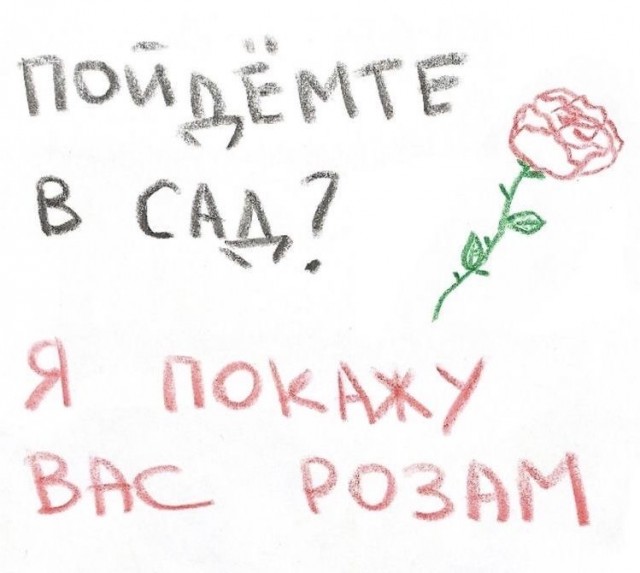 ПОЙДЁМТЕ
В САД?
Я ПОКАЖУ
ВАС РОЗАМ